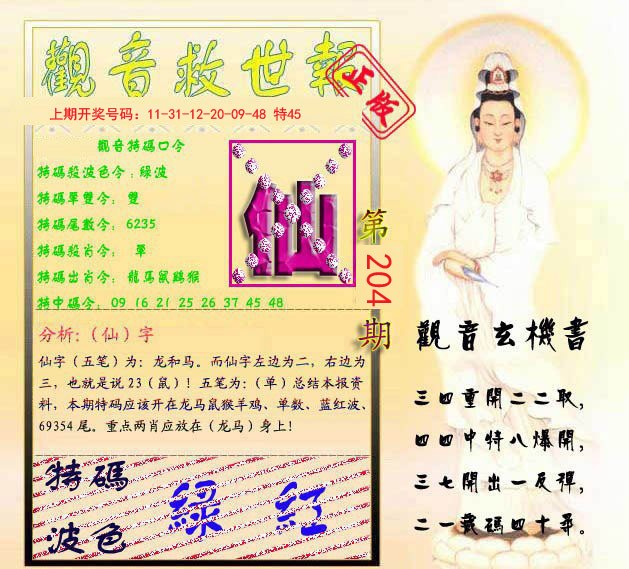 觀音救世報
正版
上期开奖号码：11-31-12-20-09-48 特45
觀音特碼口令
特碼殺波色令：綠波
特碼單雙令： 雙
特碼尾數令： 6235
特碼殺肖令： 單
特碼出肖令： 龍馬鼠鷄猴
特中碼令： 09 16 21 25 26 37 45 48
仙
第
204
期
分析：（仙）字
仙字（五笔）为：龙和马。而仙字左边为二，右边为
三，也就是说 23（鼠）！五笔为：（单）总结本报资
料，本期特码应该开在龙马鼠猴羊鸡、单数、蓝红波、
69354 尾。重点两肖应放在（龙马）身上！
特碼
波色
綠 紅
觀音玄機書
三四重開二二取，
四四中特八爆開，
三七開出一反彈，
二一載碼四十尋。